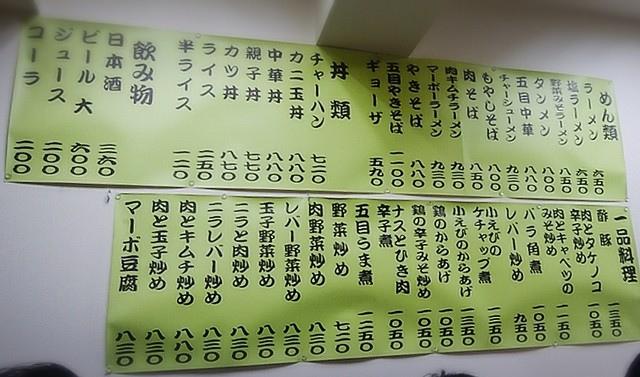 めん類
ラーメン 六五〇
塩ラーメン 六五〇
野菜みそラーメン 八五〇
タンメン 八〇〇
五目中華 八八〇
チャーシューメン 九三〇
もやしそば 八〇〇
肉そば 八五〇
肉キムチラーメン 九三〇
マーボーラーメン 九三〇
やきそば 八〇〇
五目やきそば 一一〇〇
ギョーザ 五九〇
丼類
チャーハン 七二〇
カニ玉丼 八八〇
中華丼 八八〇
親子丼 七七〇
カツ丼 八七〇
ライス 二五〇
半ライス 一二〇
飲み物
日本酒 三六〇
ビール 大 六〇〇
ジュース 二〇〇
コーラ 二〇〇
一品料理
酢豚 一三五〇
肉とタケノコ
辛子炒め 一〇五〇
肉とキャベツの
みそ炒め 一一五〇
バラ角煮 一〇五〇
レバー炒め 九五〇
小えびの
ケチャップ煮 一三五〇
小えびのからあげ 一三五〇
鶏のからあげ 一〇五〇
鶏の辛子みそ炒め 一〇五〇
ナスとひき肉
辛子煮 一〇五〇
五目うま煮 一二五〇
野菜炒め 七二〇
肉野菜炒め 八三〇
レバー野菜炒め 八三〇
玉子野菜炒め 八三〇
ニラと肉炒め 八三〇
ニラレバー炒め 八三〇
肉とキムチ炒め 八八〇
肉と玉子炒め 八三〇
マーボ豆腐 八三〇